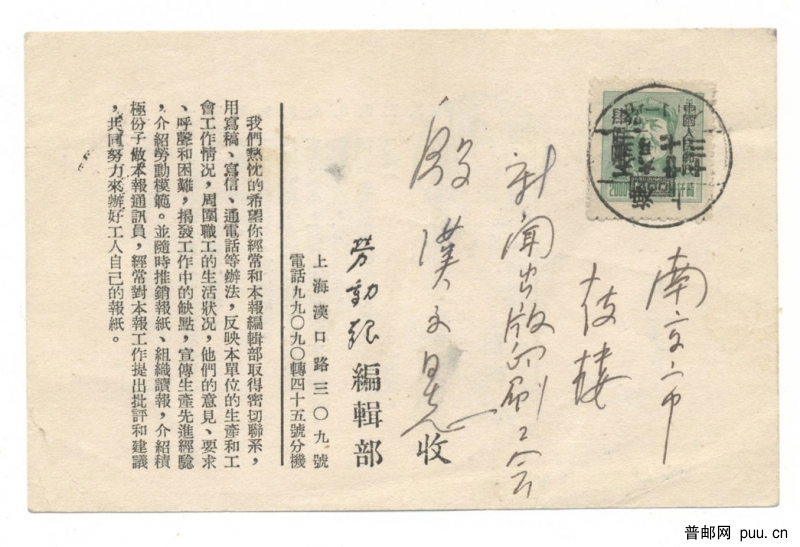 南京市
鼓樓
新聞出版印刷工会
殷漢文同志收
勞動報編輯部
上海漢口路三〇九號
電話九九〇九〇轉四十五號分機
我們熱忱的希望你經常和本報編輯部取得密切聯系，
用寫稿、寫信、通電話等辦法，反映本單位的生產和工
會工作情况，周圍職工的生活狀况，他們的意見、要求
、呼聲和困難，揭發工作中的缺點，宣傳生產先進經驗
，介紹勞動模範。並隨時推銷報紙、組織讀報，介紹積
極份子做本報通訊員，經常對本報工作提出批評和建議
，共同努力來辦好工人自己的報紙。
中國人民郵政
2000
普邮网 puu.cn